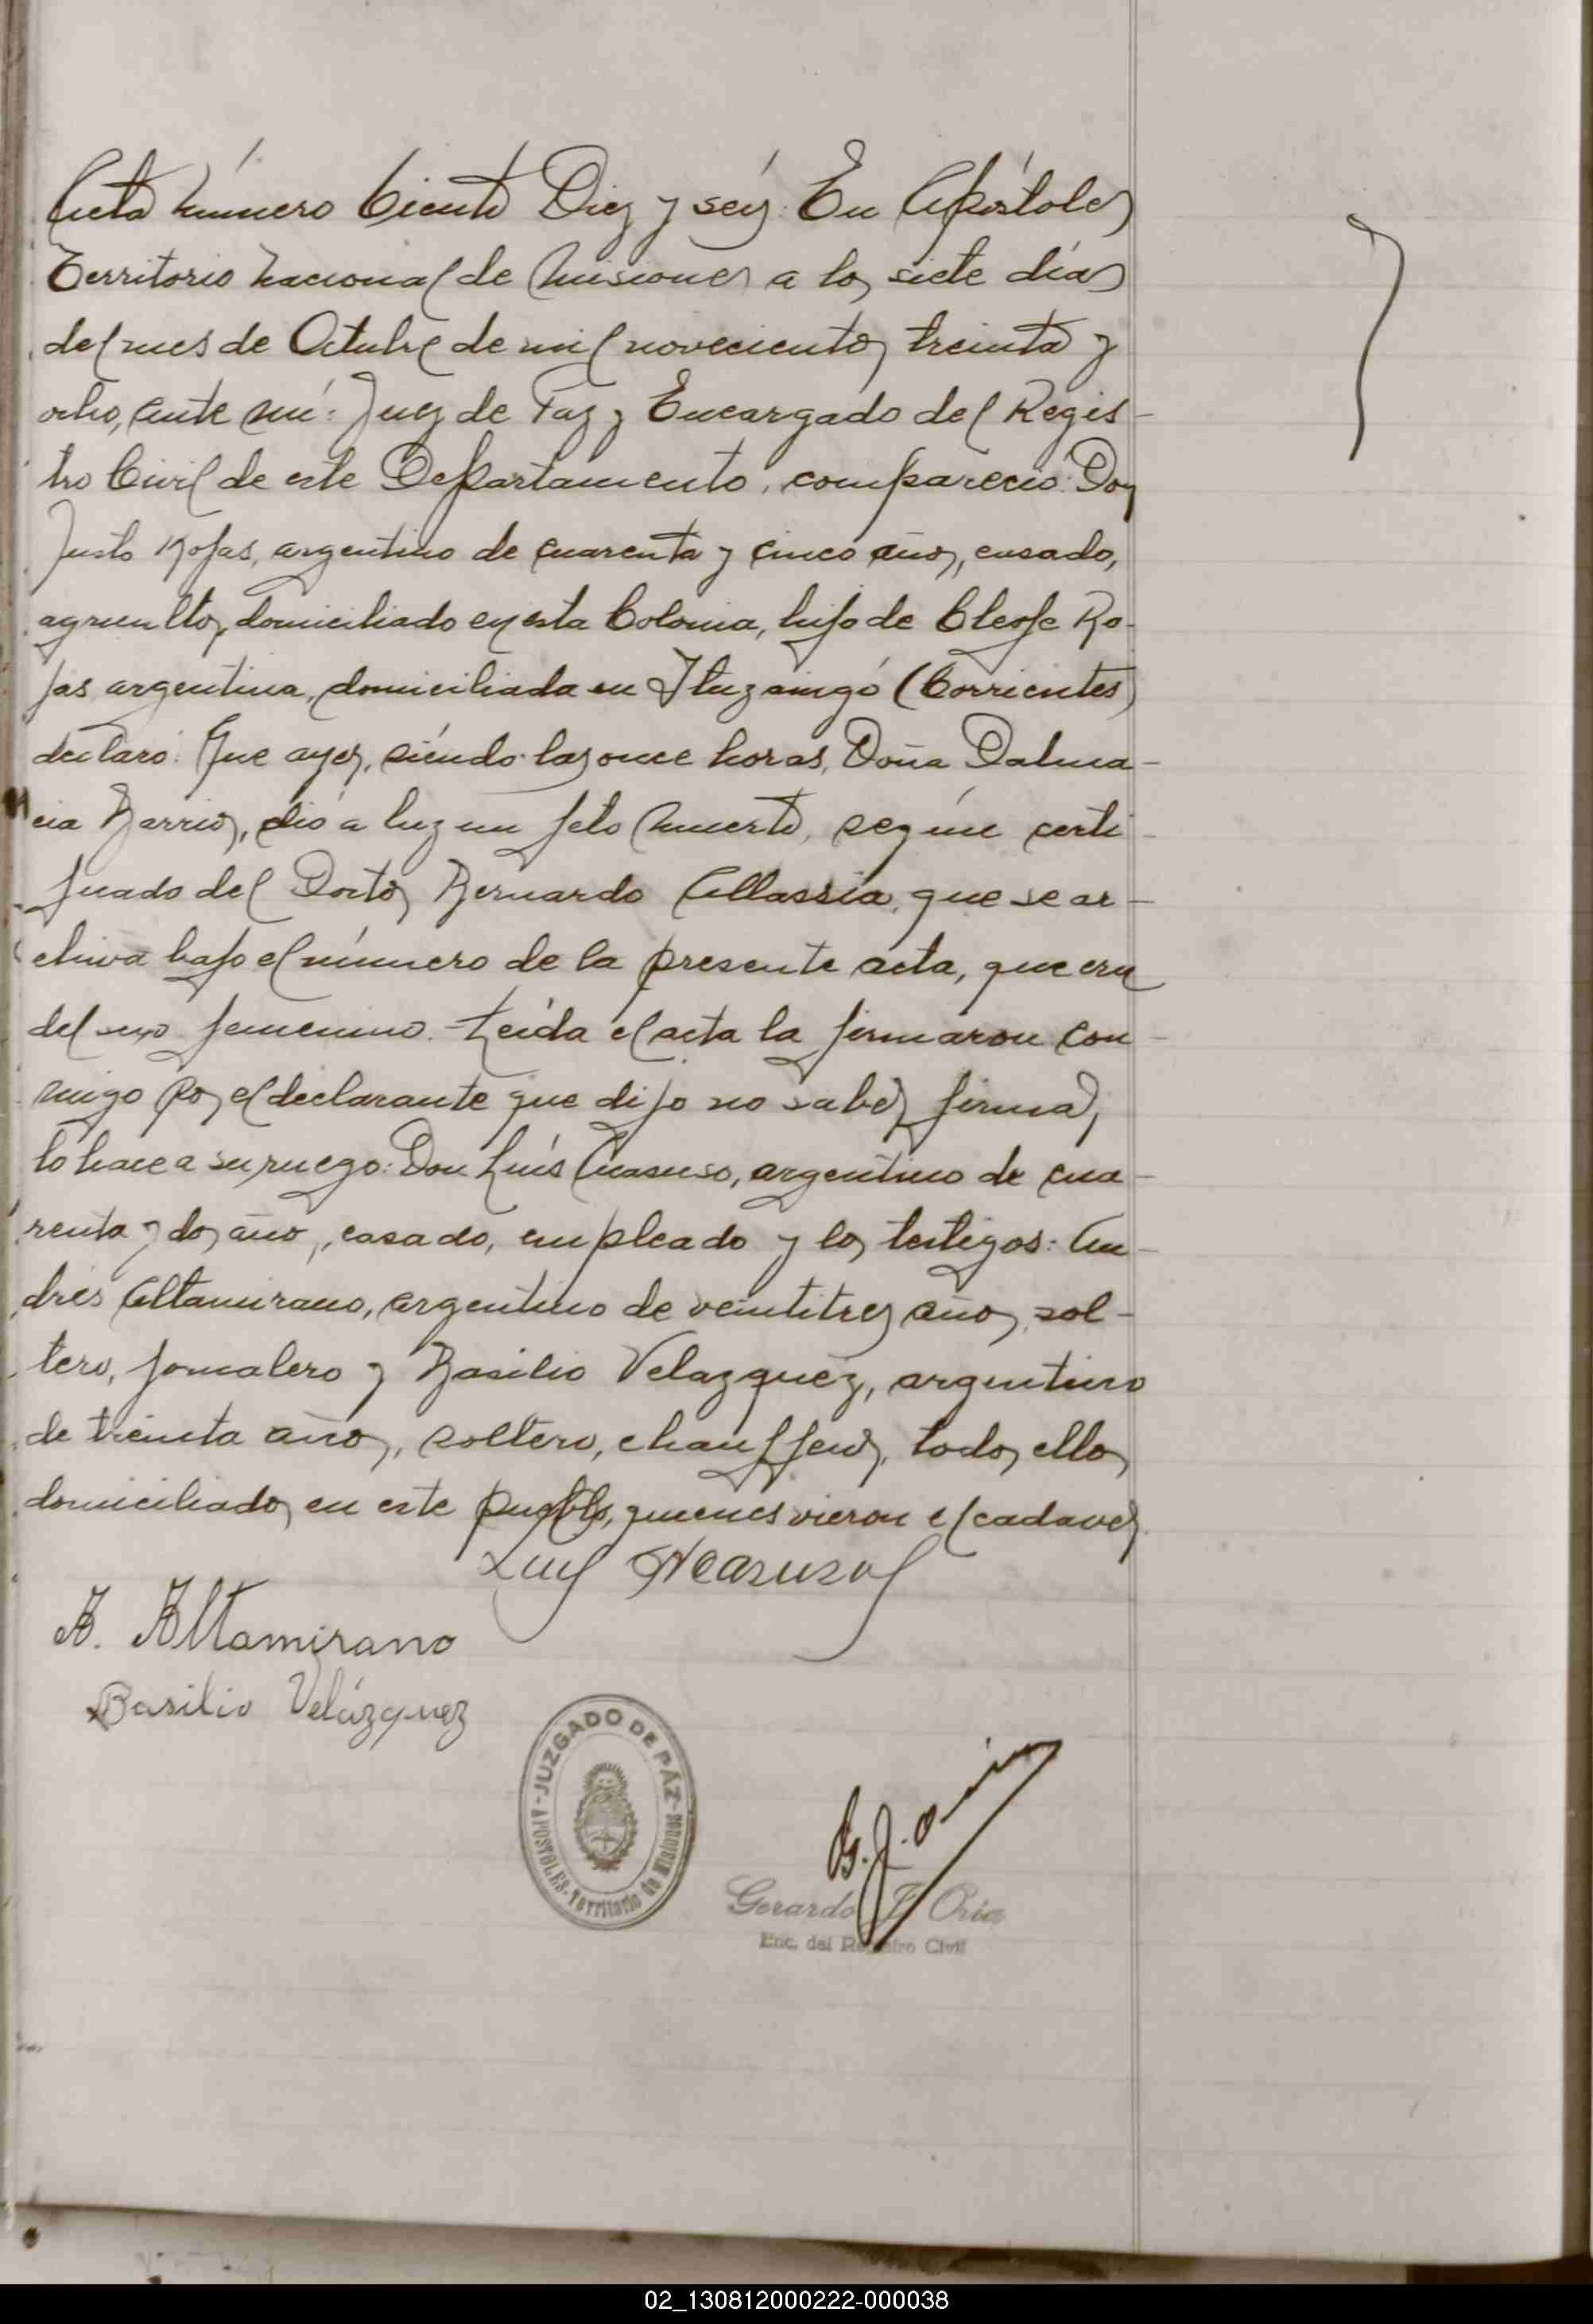 Acta número Ciento Diez y seis: En Apóstoles
Territorio Nacional de Misiones a los siete días
del mes de Octubre de mil novecientos treinta y
ocho, Ante mí: Juez de Paz y Encargado del Regis-
tro Civil de este Departamento, compareció: Don
Justo Rojas, argentino de cuarenta y cinco años, casado,
agricultor, domiciliado en esta Colonia, hijo de Cleofe Ro-
jas, argentina, domiciliada en Ituzaingó (Corrientes)
declaró: Que ayer, siendo las once horas, Doña Dalma-
cia Barrios, dió a luz un feto muerto, según certi-
ficado del Doctor Bernardo Allassia, que se ar-
chiva bajo el número de la presente acta, que era
del sexo femenino. Leída el acta la firmaron con-
migo por el declarante que dijo no saber firmar,
lo hace a su ruego: Don Luís Acasuso, argentino de cua-
renta y dos años, casado, empleado y los testigos: An-
drés Altamirano, argentino de veintitres años, sol-
tero, jornalero y Basilio Velazquez, argentino
de treinta años, soltero, chauffeur, todos ellos
domiciliados en este pueblo, quienes vieron el cadaver.
Luis Acasuso
A. Altamirano
Basilio Velázquez
JUZGADO DE PÁZ
APOSTOLES-Territorio de Misiones
G. J. Oria
Gerardo J. Oria
Enc. del Registro Civil
02_130812000222-000038